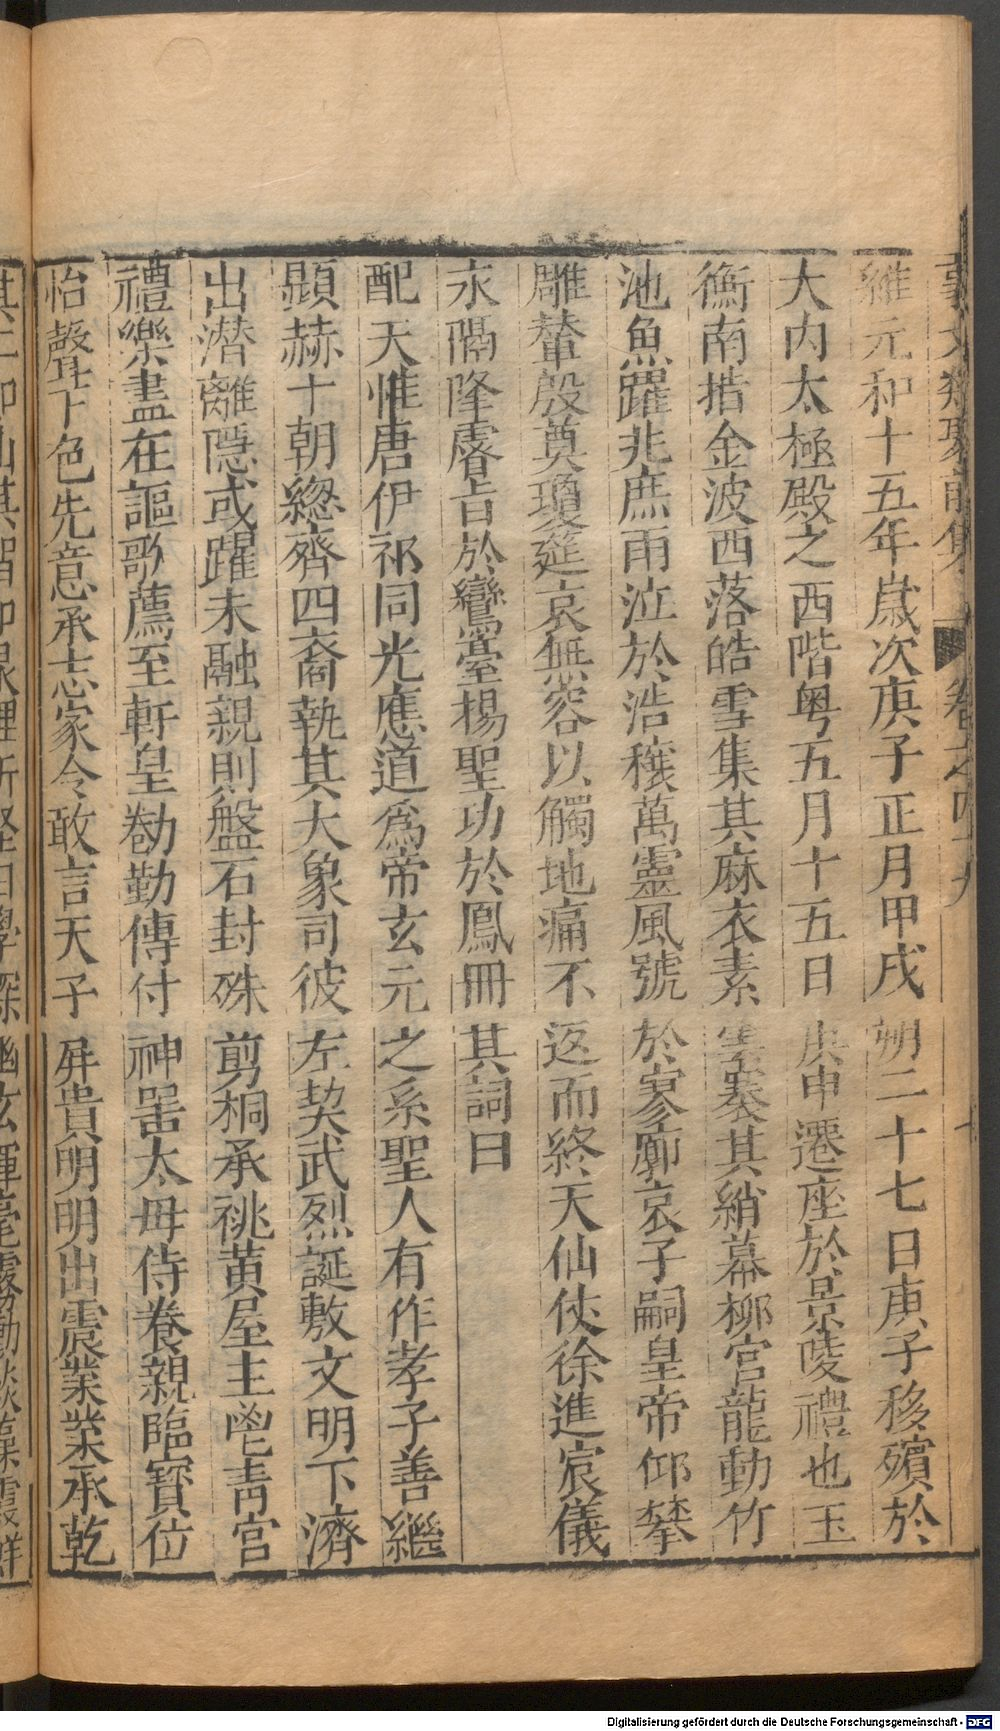 維元和十五年歲次庚子正月甲戌朔二十七日庚子移殯於
大內太極殿之西階粤五月十五日庚申遷座於景陵禮也玉
衡南揩金波西落皓雪集其麻衣素雲褰其綃幕柳宮龍動竹
池魚躍兆庶雨泣於浩穰萬靈風號於寥廓哀子嗣皇帝仰攀
雕輦殷奠瓊筵哀無容以觸地痛不返而終天仙仗徐進宸儀
永隔隆睿旨於鸞臺揚聖功於鳳冊其詞曰
配天惟唐伊祁同光應道爲帝玄元之系聖人有作孝子善繼
顯赫十朝緫齊四裔執其大象司彼左契武烈誕敷文明下濟
出潜離隱或躍未融親則盤石封殊剪桐承祧黃屋主鬯青宮
禮樂盡在謳歌薦至軒皇勌勤傳付神器太母侍養親臨寳位
怡聲下色先意承志家令敢言天子屛貴明明出震業業承乾
Digitalisierung gefördert durch die Deutsche Forschungsgemeinschaft - DFG